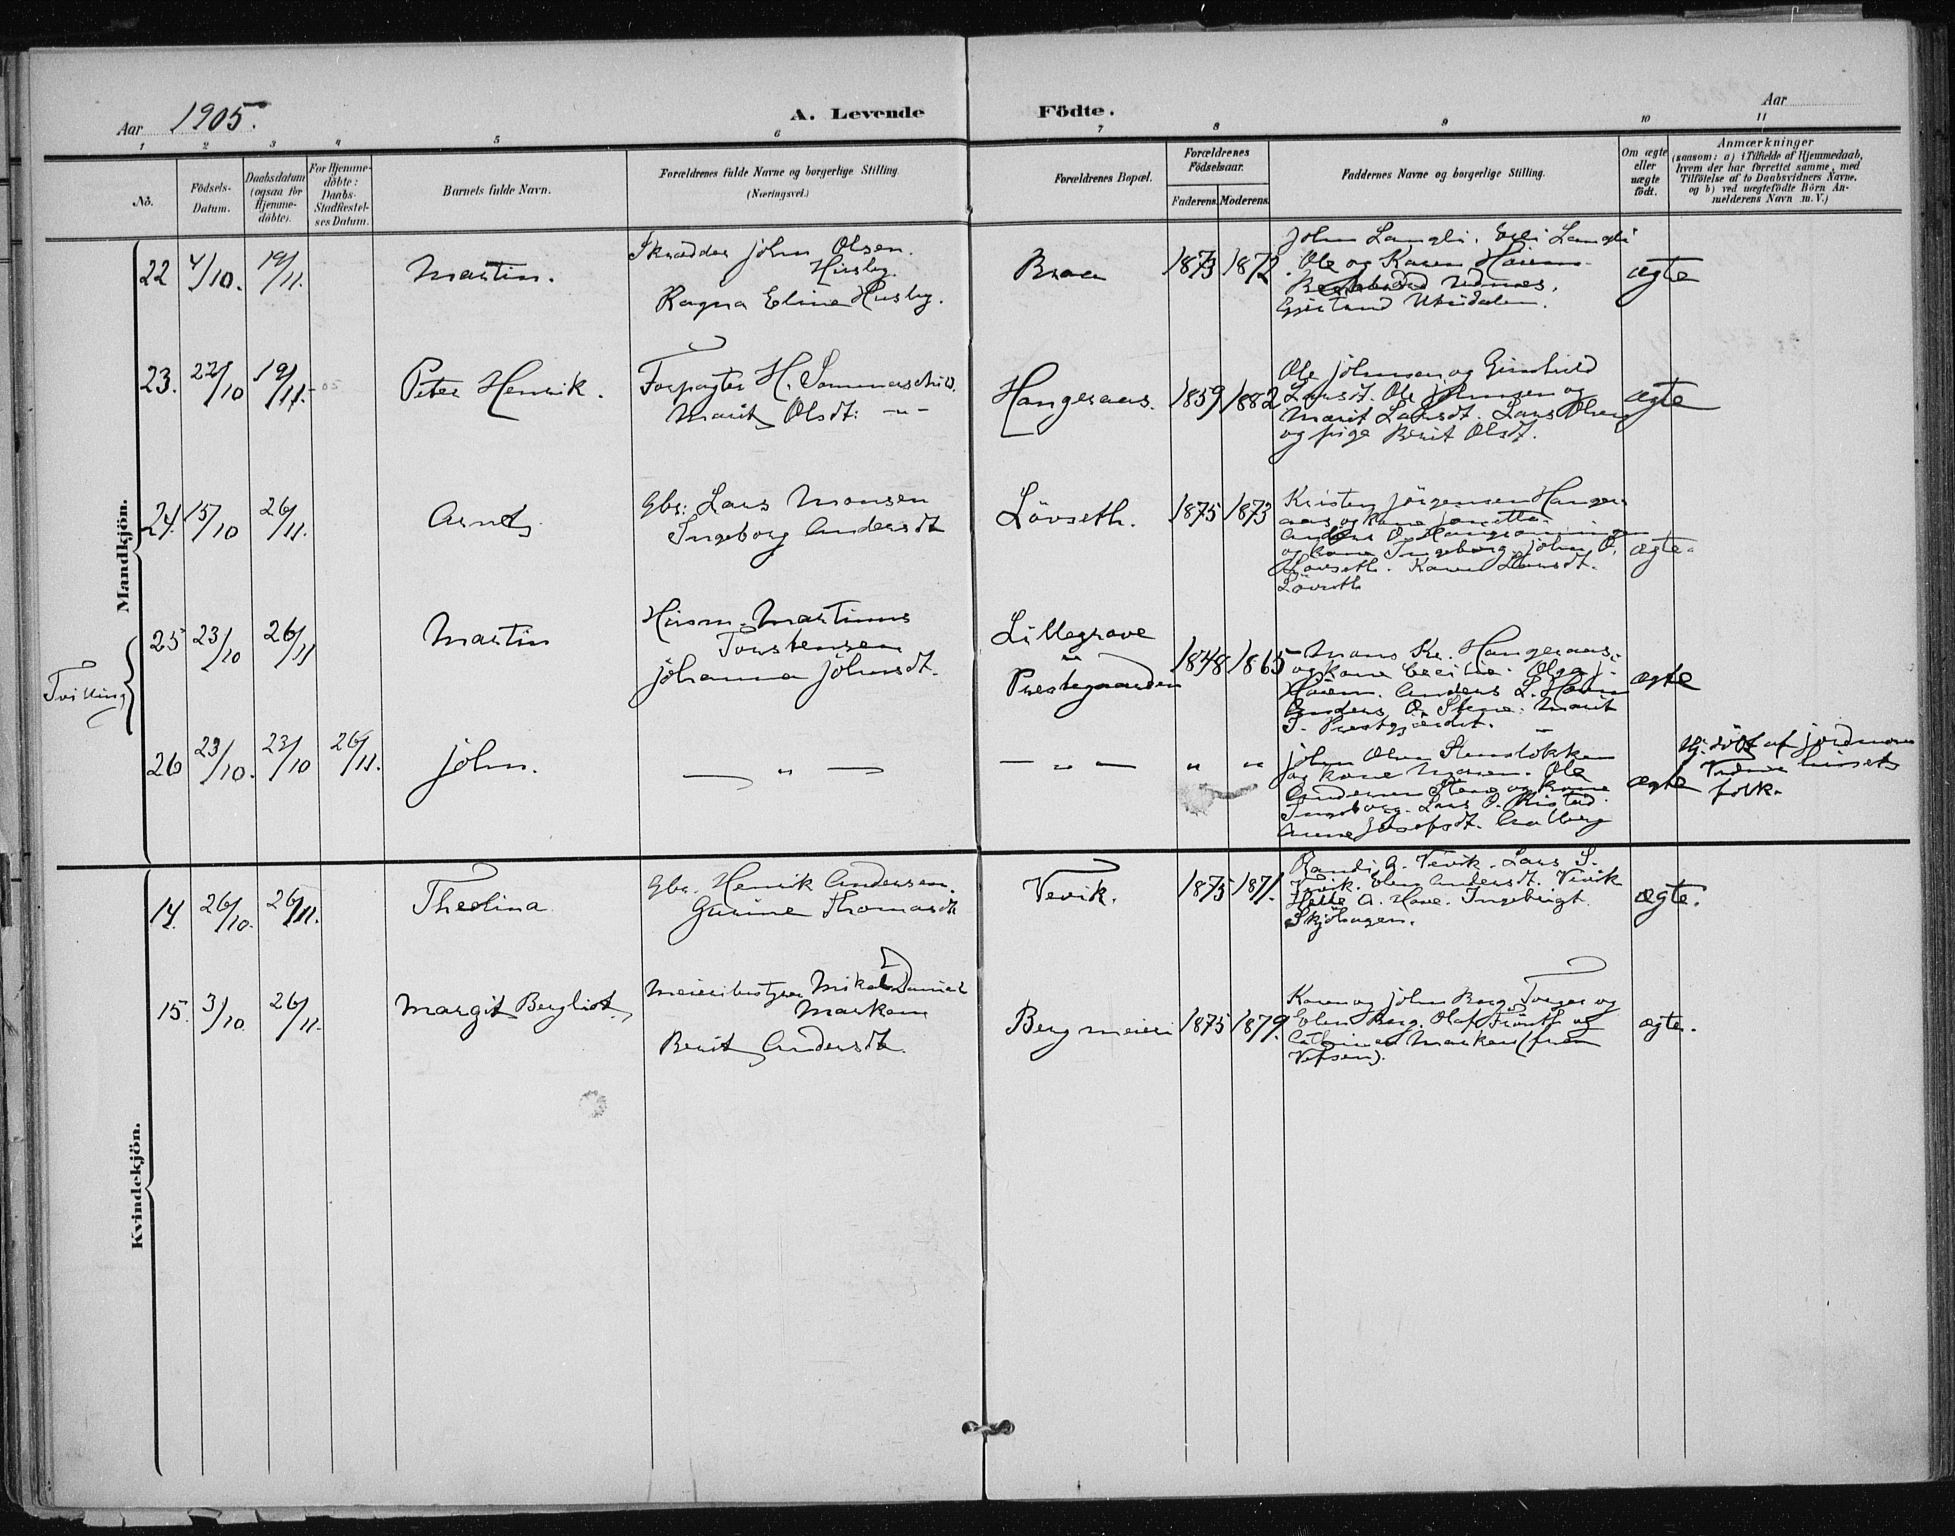 Aar 1905.
A. Levende Födte.
Aar
1 2 3 4 5 6 7 8 9 10 11
No.
Födsels-Datum.
Daabsdatum (ogsaa for Hjemme-döbte).
For Hjemme-döbte: Daabs-Stadfæstel-ses Datum.
Barnets fulde Navn.
Forældrenes fulde Navne og borgerlige Stilling (Næringsvei.)
Forældrenes Bopæl.
Forældrenes Födselsaar.
Faderens. Moderens.
Faddernes Navne og borgerlige Stilling.
Om ægte eller uægte födt.
Anmærkninger
(saasom: a) i Tilfælde af Hjemmedaab,
hvem der har forrettet samme, med
Tilföielse af to Daabsvidners Navne,
og b) ved uægtefödte Börn An-
melderens Navn m.V.)
Mandkjön.
22 4/10. 19/11. Martin.
Skrædder John Olsen
Husby.
Ragna Eline Husby.
Braa 1873 1872.
John Langli. Eli Langli
Ole og Karen Havem
Udnæs.
ægte
23. 22/10 19/11. Peter Henrik.
Forpagter H. Sommerschild.
Marit Olsdt: -"-
Hangeraas. 1859 1882
Ole Johnsen og Gunhild
Larsdt. Ole Johnsen og
Marit Larsdt. Lars Olsen
og pige Berit Olsdt.
ægte
24. 15/10 26/11. Arnt
Gbr: Lars Monsen
Ingeborg Andersdt
Lövseth. 1875 1873
Kristen Jörgensen Hanger-
aas og kone
Anders O.
og kone Ingeborg. John O.
Havseth. Karen Larsdt.
Lövseth
ægte.
Tvilling
25 23/10 26/11 Martin
Husm. Martinus
Torstensen
Johanna Johnsdt.
Lillegrave
Prestegaarden
1848 1865
Mons Kr. Hangeraas.
og kone Cecilie. Olga J.
Havem. Anders L. Havem
Anders O. Stene. Marit
T. Prestgjerdet.
ægte
26 23/10. 23/10 26/11. John.
— " —
— " — " "
John Olsen
og kone Maren. Ole
Andersen Stene og kone
Ingeborg. Lars O. Ristad.
Anne Josefsdt. Aalberg
ægte
Hj. döbt af jordmor
Vidner husets
folk.
Kvindekjön.
14. 26/10. 26/11. Theolina
Gbr. Henrik Andersen.
Gurine Thomasdt
Vevik. 1875 1871.
Randi A. Vevik. Lars S.
Vevik. Elen Andersdt. Vevik
A. Hove. Ingebrigt
Skjölhagen.
ægte.
15. 3/10. 26/11. Margit Bergliot
Meieribestyrer Mikal Daniel
Marken
Berit Andersdt.
Berg meieri 1875 1879.
Karen og John Berg. Torger og
Elen Berg. Olaf og
Marken (fra
Vefsen).
ægte.